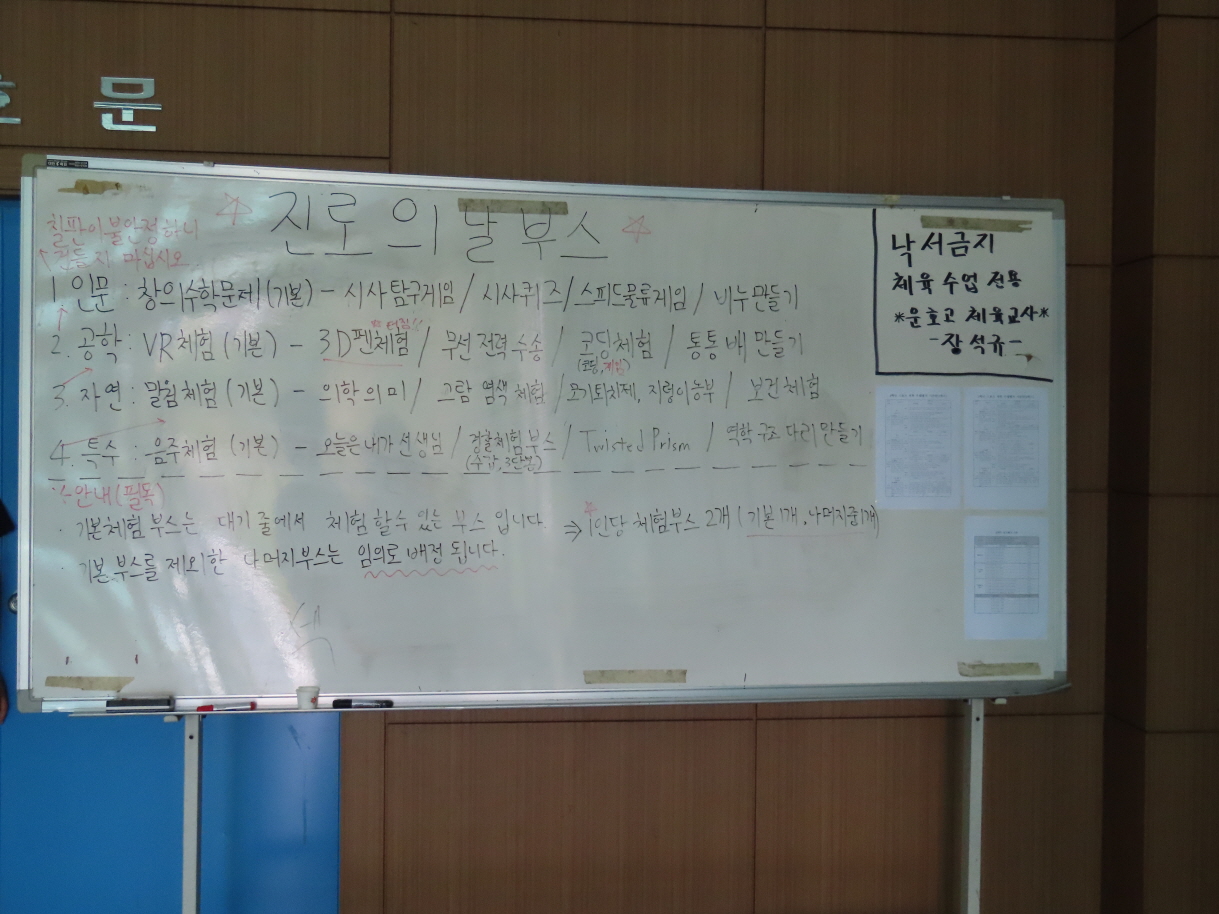 문
칠판이 불안정하니
건들지 마십시오
☆ 진로의 날 부스 ☆
1. 인문 : 창의수학문제(기본) - 시사탐구게임 / 시사퀴즈 / 스피드물류게임 / 비누만들기
2. 공학 : VR체험(기본) - 3D펜체험 / 무선 전력 수송 / 코딩체험 / 통통배 만들기
마감!!
(코딩, 게임)
3. 자연 : 말림체험(기본) - 의학의 미 / 그람 염색 체험 / 모기퇴치제, 지렁이농부 / 보건체험
4. 특수 : 음주체험(기본) - 오늘은 내가 선생님 / 경찰체험 부스 / Twisted Prism / 역학 구조 다리 만들기
(수갑, 3단봉)
안내(필독)
· 기본체험 부스는 대기 줄에서 체험 할 수 있는 부스 입니다. ⇒ 1인당 체험부스 2개 (기본1개, 나머지중1개)
· 기본 부스를 제외한 나머지부스는 임의로 배정 됩니다.
낙서금지
체육 수업 전용
*운호고 체육교사*
-장석규-